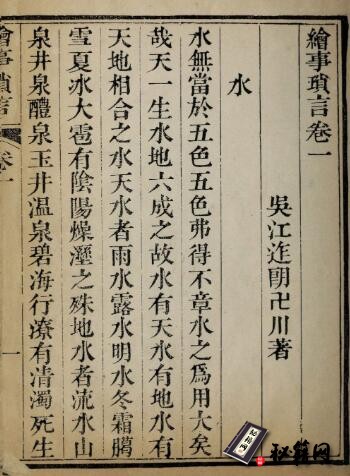 繪事瑣言卷一
吳江迮朗卍川著
水
水無當於五色五色弗得不章水之爲用大矣
哉天一生水地六成之故水有天水有地水有
天地相合之水天水者雨水露水明水冬霜臈
雪夏冰大雹有陰陽燥溼之殊地水者流水山
泉井泉醴泉玉井温泉碧海行潦有清濁死生
繪事瑣言
卷一
一
秘籍网